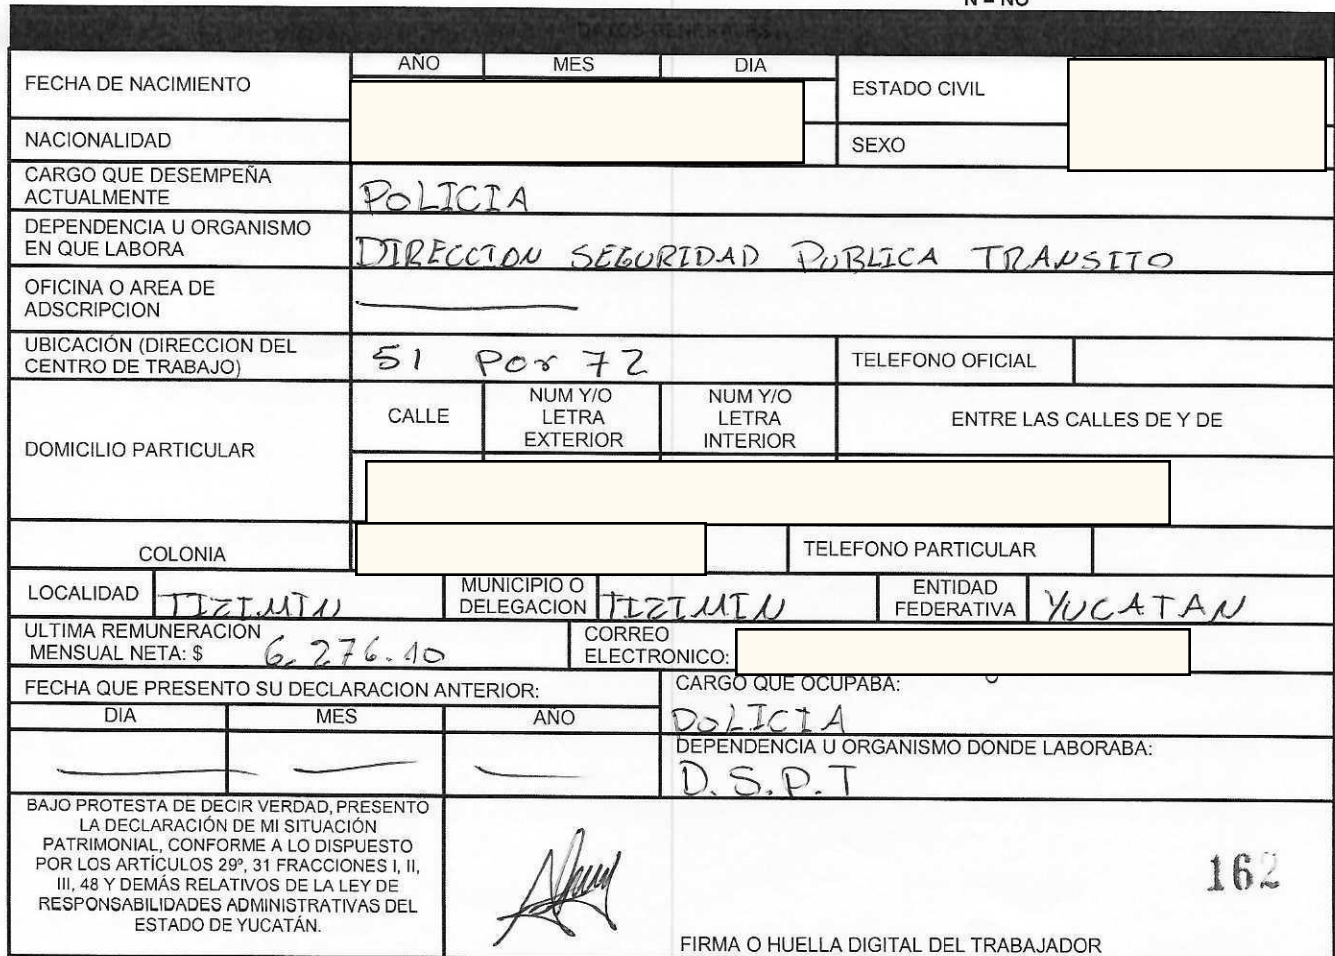 N = NO
DATOS GENERALES
FECHA DE NACIMIENTO
AÑO MES DIA
ESTADO CIVIL
NACIONALIDAD
SEXO
CARGO QUE DESEMPEÑA
ACTUALMENTE
POLICIA
DEPENDENCIA U ORGANISMO
EN QUE LABORA
DIRECCION SEGURIDAD PUBLICA TRANSITO
OFICINA O AREA DE
ADSCRIPCION
UBICACIÓN (DIRECCION DEL
CENTRO DE TRABAJO)
51 Por 72
TELEFONO OFICIAL
DOMICILIO PARTICULAR
CALLE
NUM Y/O
LETRA
EXTERIOR
NUM Y/O
LETRA
INTERIOR
ENTRE LAS CALLES DE Y DE
COLONIA
TELEFONO PARTICULAR
LOCALIDAD
TIZIMIN
MUNICIPIO O
DELEGACION
TIZIMIN
ENTIDAD
FEDERATIVA
YUCATAN
ULTIMA REMUNERACION
MENSUAL NETA: $ 6,276.10
CORREO
ELECTRONICO:
FECHA QUE PRESENTO SU DECLARACION ANTERIOR:
DIA MES AÑO
CARGO QUE OCUPABA:
POLICIA
DEPENDENCIA U ORGANISMO DONDE LABORABA:
D.S.P.T
BAJO PROTESTA DE DECIR VERDAD, PRESENTO
LA DECLARACIÓN DE MI SITUACIÓN
PATRIMONIAL, CONFORME A LO DISPUESTO
POR LOS ARTÍCULOS 29º, 31 FRACCIONES I, II,
III, 48 Y DEMÁS RELATIVOS DE LA LEY DE
RESPONSABILIDADES ADMINISTRATIVAS DEL
ESTADO DE YUCATÁN.
162
FIRMA O HUELLA DIGITAL DEL TRABAJADOR